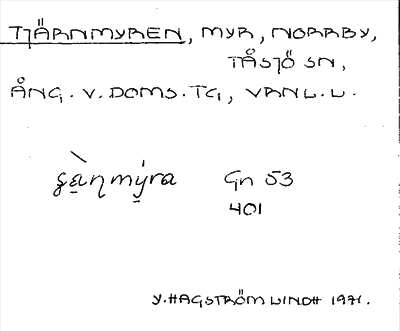 TJÄRNMYREN, MYR, NORRBY,
TÅSJÖ SN,
ÅNG. V. DOMS. TG, VANL. U.
Gn 53
401
Y. HAGSTRÖM LINDH 1971.